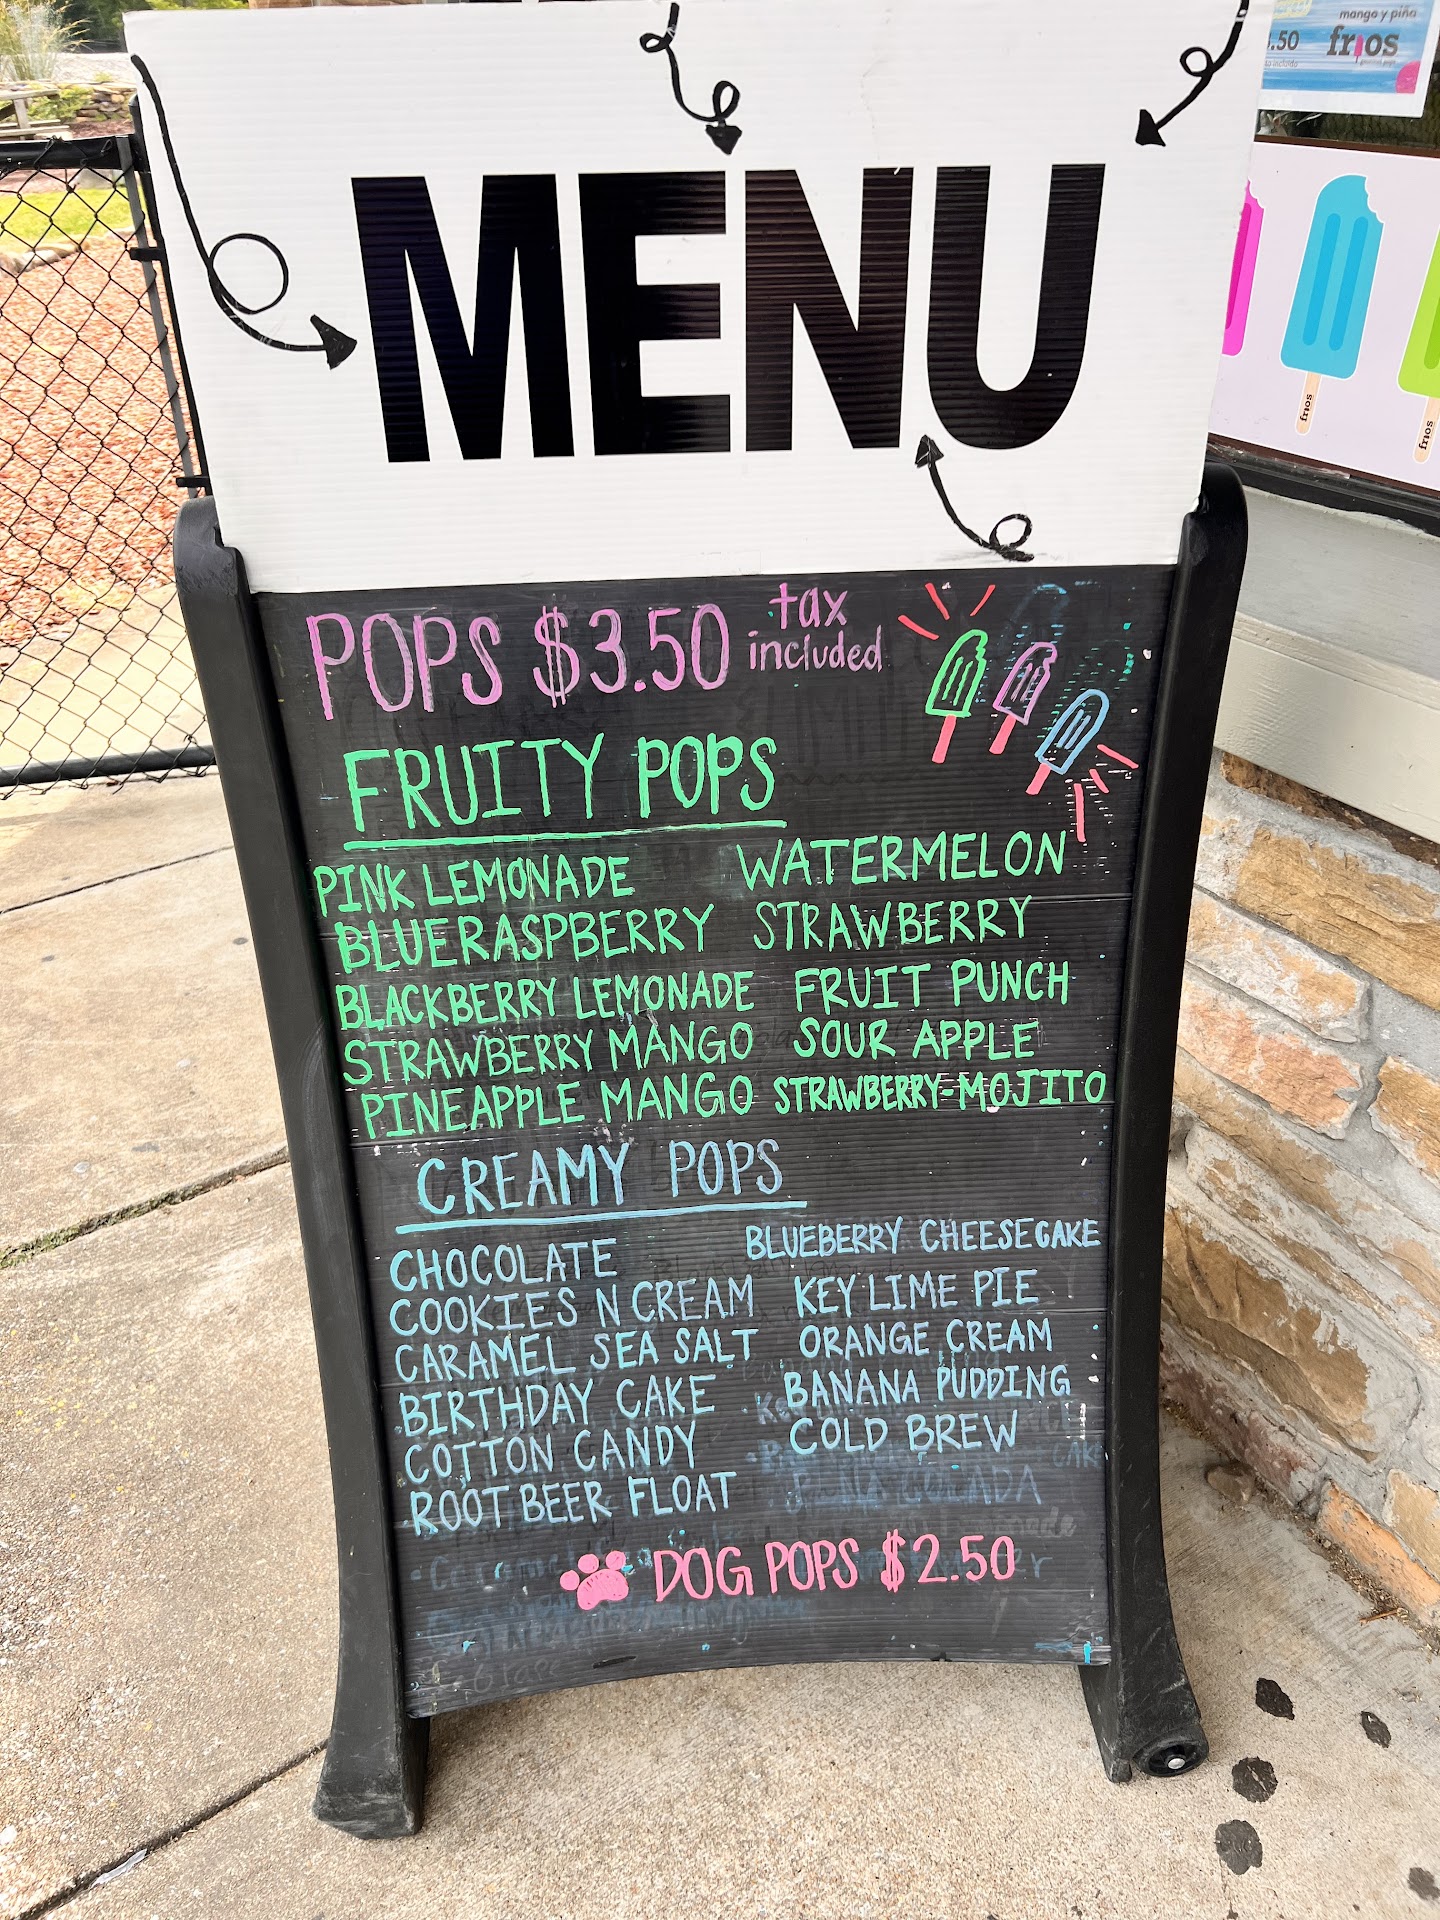 mango y piña
.50
frios
MENU
frios
frios
POPS $3.50 tax included
FRUITY POPS
PINK LEMONADE WATERMELON
BLUE RASPBERRY STRAWBERRY
BLACKBERRY LEMONADE FRUIT PUNCH
STRAWBERRY MANGO SOUR APPLE
PINEAPPLE MANGO STRAWBERRY-MOJITO
CREAMY POPS
CHOCOLATE BLUEBERRY CHEESECAKE
COOKIES N CREAM KEY LIME PIE
CARAMEL SEA SALT ORANGE CREAM
BIRTHDAY CAKE BANANA PUDDING
COTTON CANDY COLD BREW
ROOT BEER FLOAT
DOG POPS $2.50